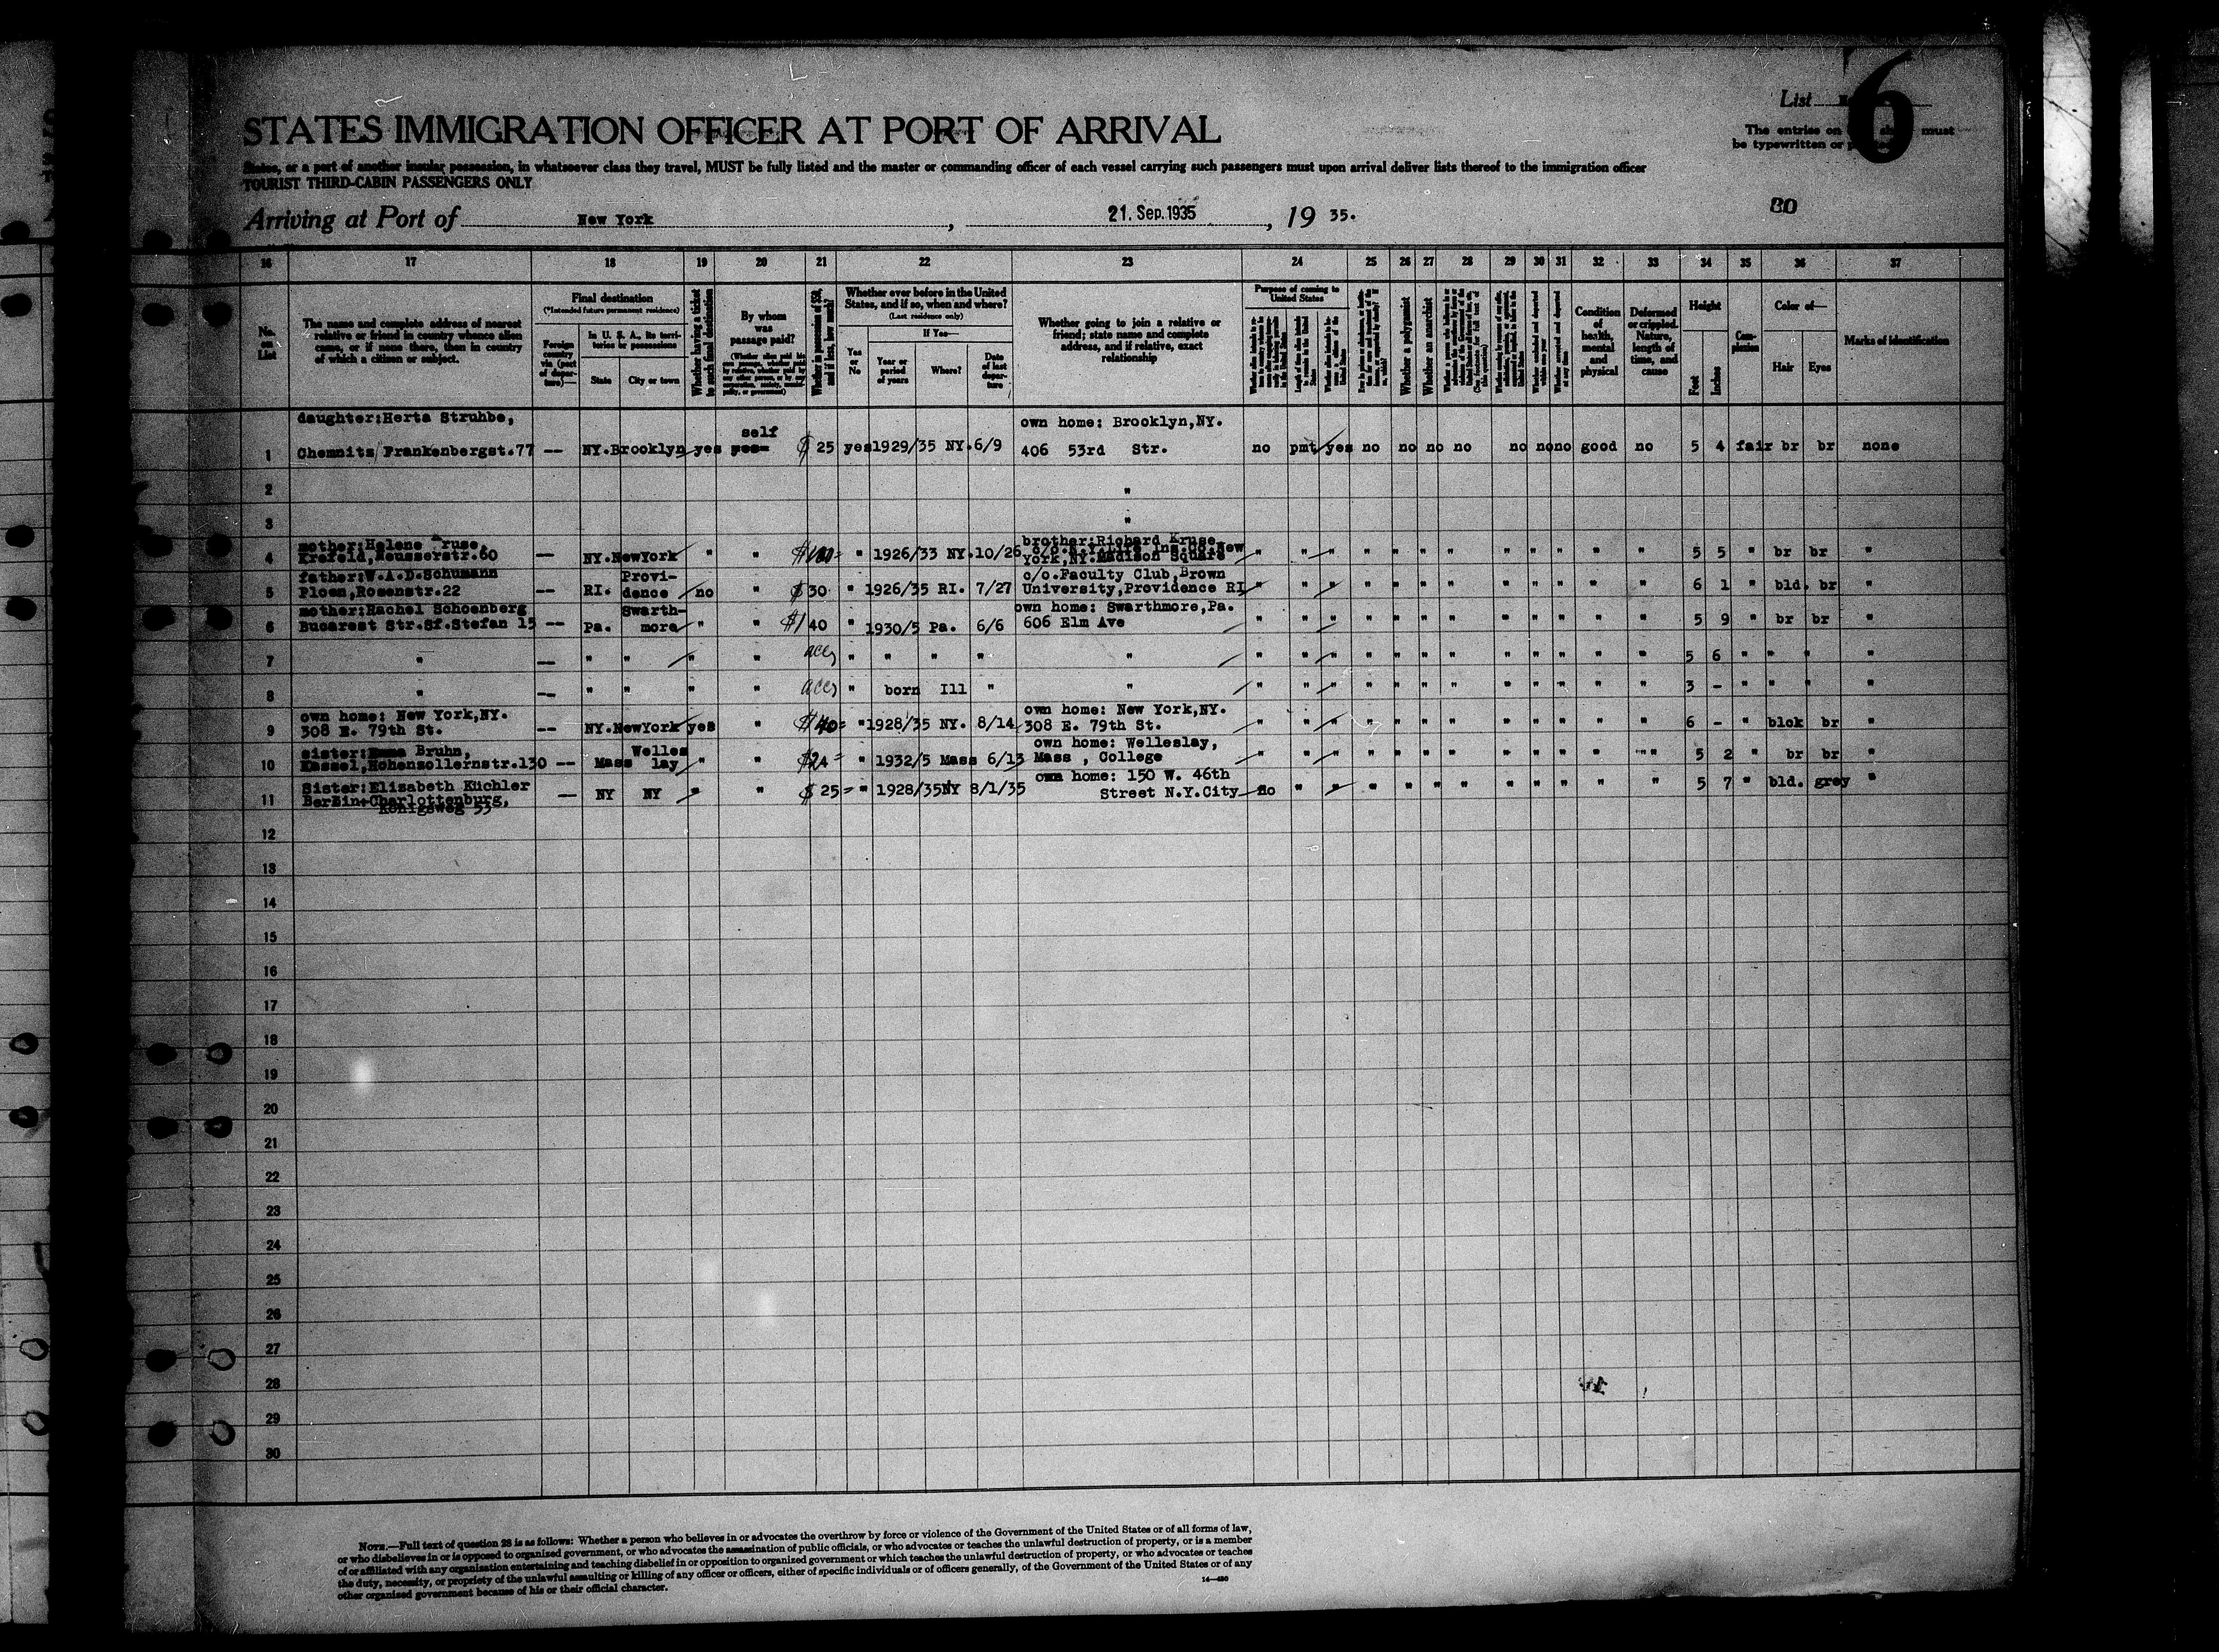 List
6
STATES IMMIGRATION OFFICER AT PORT OF ARRIVAL
The entries on must
be typewritten or
States, or a port of another insular possession, in whatsoever class they travel, MUST be fully listed and the master or commanding officer of each vessel carrying such passengers must upon arrival deliver lists thereof to the immigration officer
TOURIST THIRD-CABIN PASSENGERS ONLY
80
Arriving at Port of New York, 21. Sep. 1935, 19 35.
16 17 18 19 20 21 22 23 24 25 26 27 28 29 30 31 32 33 34 35 36 37
No. on List
The name and complete address of nearest
relative or friend in country whence alien
came, or if none there, then in country
of which a citizen or subject.
Final destination
(*Intended future permanent residence)
Foreign country via (port of departure)—
In U. S. A., its territories or possessions
State
City or town
Whether having a ticket to such final destination
By whom was passage paid?
Whether ever before in the United
States, and if so, when and where?
(Last residence only)
Yes or No
If Yes—
Year or period of years
Where?
Date of last departure
Whether going to join a relative or
friend; state name and complete
address, and if relative, exact
relationship
Purpose of coming to United States
Whether a polygamist
Whether an anarchist
Condition of health, mental and physical
Deformed or crippled. Nature, length of time, and cause
Height
Feet
Inches
Complexion
Color of—
Hair
Eyes
Marks of identification
daughter:Herta Struhbe, self own home: Brooklyn,NY.
1 Chemnitz/Frankenbergst.77 -- NY.Brooklyn yes yes $ 25 yes 1929/35 NY. 6/9 406 53rd Str. no pmt yes no no no no no no no good no 5 4 fair br br none
2 "
3 "
mother:Helene Kruse, brother:Richard Kruse,
4 Krefeld,Neusserstr.60 -- NY.NewYork " " $100 " 1926/33 NY. 10/26 York,NY.Madison Square " " " " " " " " " " " " 5 5 " br br "
father:W.A.D.Schumann Provi- c/o.Faculty Club,Brown
5 Ploen,Rosenstr.22 -- RI. dence no " $ 30 " 1926/35 RI. 7/27 University,Providence RI " " " " " " " " " " " " 6 1 " bld. br "
mother:Rachel Schoenberg Swarth- own home: Swarthmore,Pa.
6 Bucarest Str.Sf.Stefan 15 -- Pa. more " " $140 " 1930/5 Pa. 6/6 606 Elm Ave " " " " " " " " " " " " 5 9 " br br "
7 " -- " " " " acc " " " " " " " " " " " " " " " " " " 5 6 " " " "
8 " -- " " " " acc " born Ill " " " " " " " " " " " " " " " 3 - " " " "
own home: New York,NY. own home: New York,NY.
9 308 E. 79th St. -- NY.NewYork yes " $40= " 1928/35 NY. 8/14 308 E. 79th St. " " " " " " " " " " " " 6 - " blck br "
sister: Bruhn, Welles own home: Welleslay,
10 Kassel,Hohenzollernstr.130 -- Mass lay " " " 1932/5 Mass 6/13 Mass , College " " " " " " " " " " " " 5 2 " br br "
Sister:Elisabeth Küchler own home: 150 W. 46th
11 Berlin-Charlottenburg, -- NY NY " " $ 25= " 1928/35 NY 8/1/35 Street N.Y.City no " " " " " " " " " " " " 5 7 " bld. grey "
Königsweg 53
12
13
14
15
16
17
18
19
20
21
22
23
24
25
26
27
28
29
30
NOTE.—Full text of question 28 is as follows: Whether a person who believes in or advocates the overthrow by force or violence of the Government of the United States or of all forms of law,
or who disbelieves in or is opposed to organized government, or who advocates the assassination of public officials, or who advocates or teaches the unlawful destruction of property, or is a member
of or affiliated with any organization entertaining and teaching disbelief in or opposition to organized government or which teaches the unlawful destruction of property, or who advocates or teaches
the duty, necessity, or propriety of the unlawful assaulting or killing of any officer or officers, either of specific individuals or of officers generally, of the Government of the United States or of any
other organized government because of his or their official character.